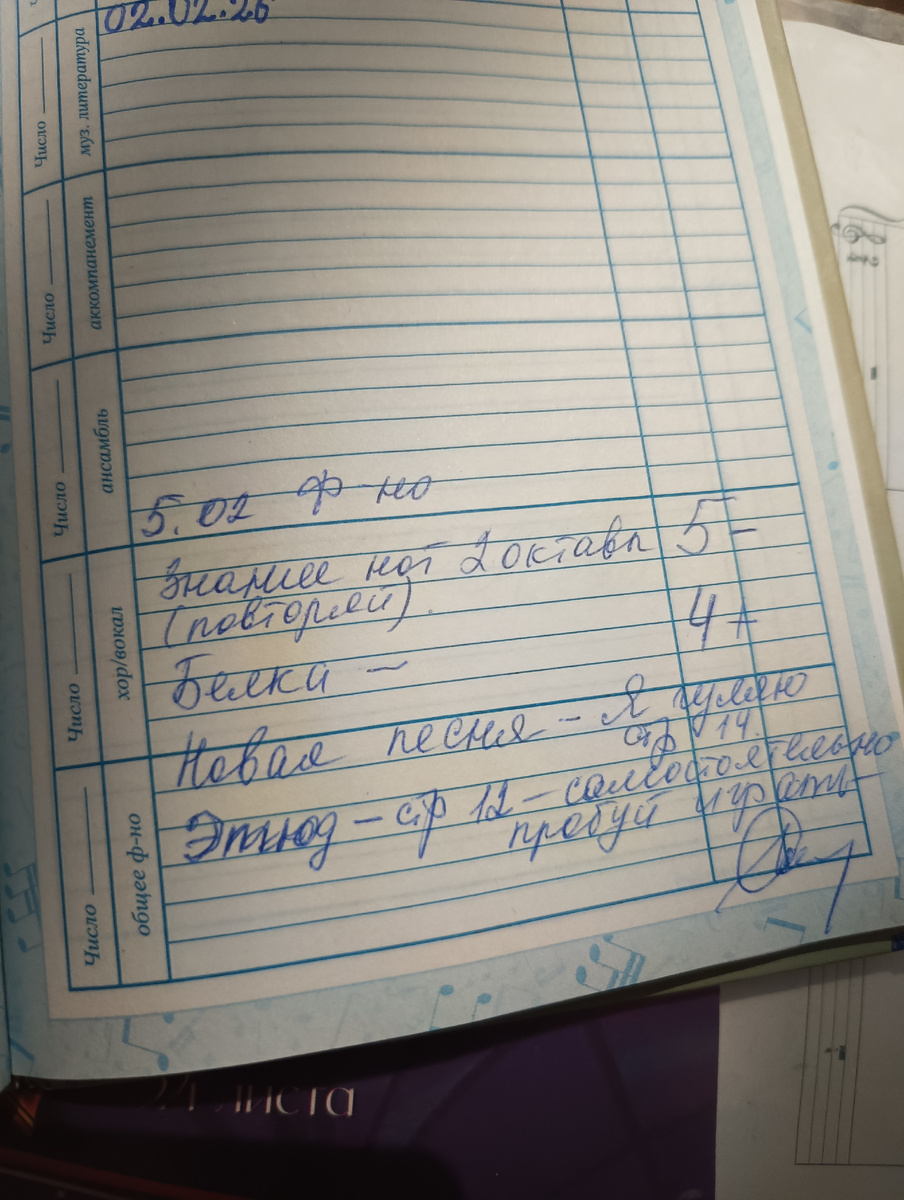 02.02.26
Число
муз. литература
Число
аккомпанемент
Число
ансамбль
5.02 ф-но
Число
хор/вокал
Знание нот 2 октавы 5-
(повторяй).
Белка — 4+
Новая песня - Я гуляю
стр 14.
Число
общее ф-но
Этюд - стр 12 - самостоятельно
пробуй играть
листа